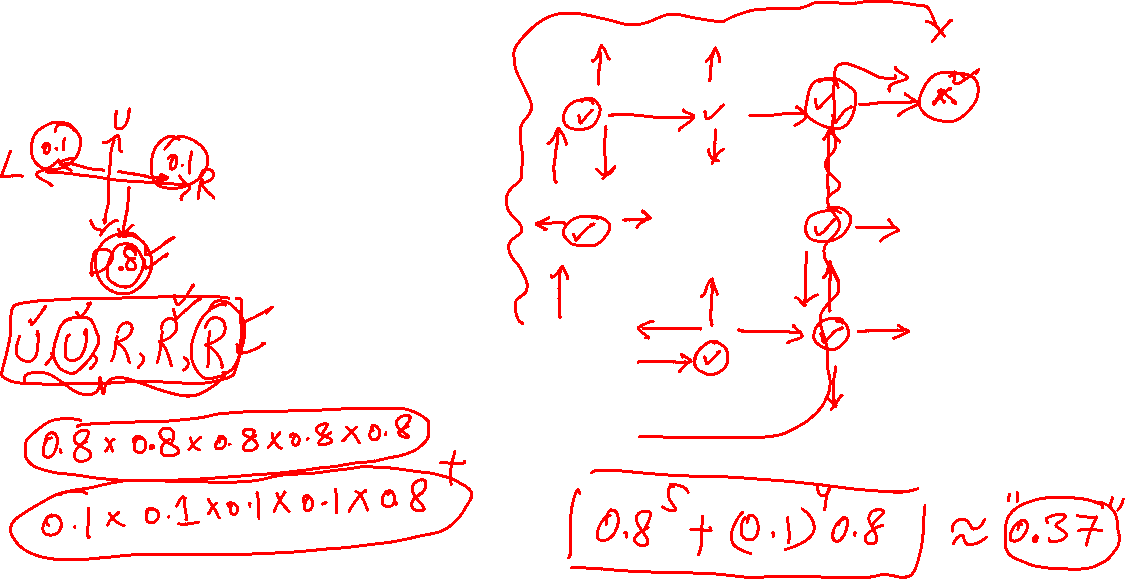 U
0.1
0.1
L R
D 0.8
U, U, R, R, R
0.8 × 0.8 × 0.8 × 0.8 × 0.8
+
0.1 × 0.1 × 0.1 × 0.1 × 0.8
0.8⁵ + (0.1)⁴ 0.8 ≈ "0.37"